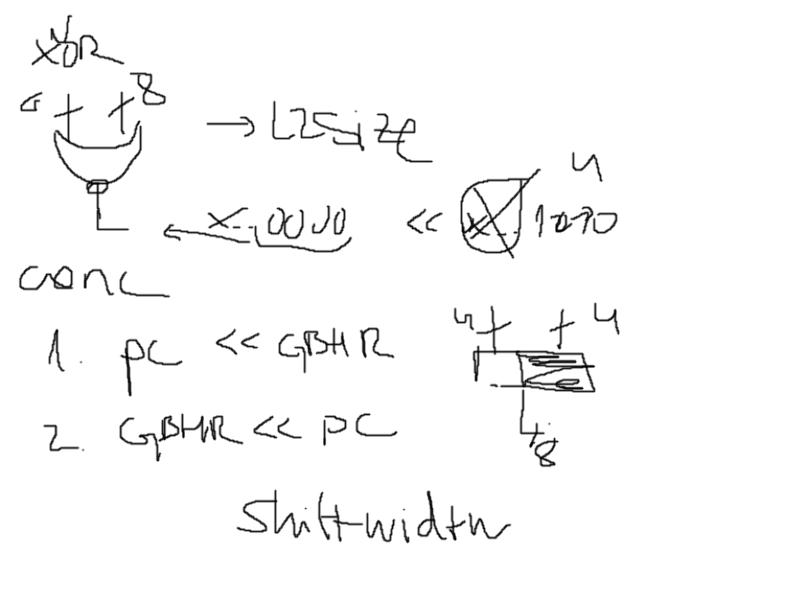 XOR
8
→ L2Size
4
X..0000 << X.. 1010
conc
1. PC << GBHR
4 4
2. GBHR << PC
8
Shiftwidth